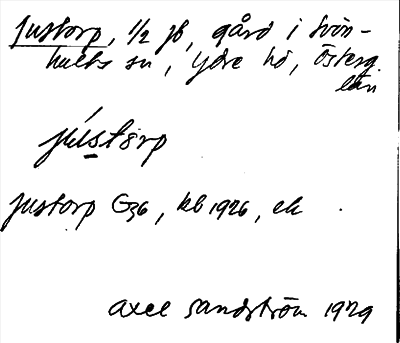 Justorp, 1/2 jb, gård i Svin-
hults sn, Ydre hd, Österg.
län
jústòrp
Justorp G36, kb 1926, ek.
Axel Sandström 1929